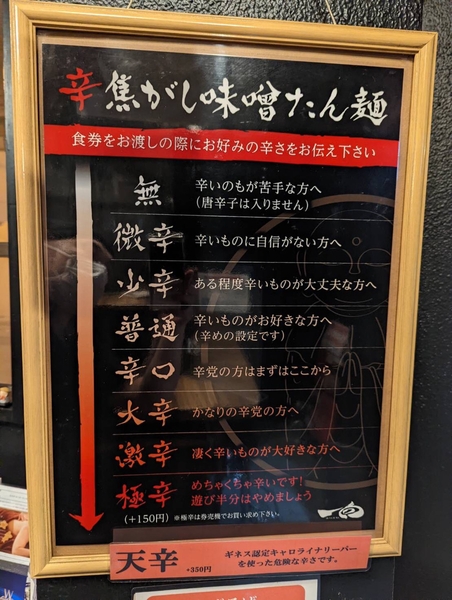 辛焦がし味噌たん麺
食券をお渡しの際にお好みの辛さをお伝え下さい
無
辛いのもが苦手な方へ
(唐辛子は入りません)
微辛
辛いものに自信がない方へ
少辛
ある程度辛いものが大丈夫な方へ
普通
辛いものがお好きな方へ
(辛めの設定です)
辛口
辛党の方はまずはここから
大辛
かなりの辛党の方へ
激辛
凄く辛いものが大好きな方へ
極辛
めちゃくちゃ辛いです!
遊び半分はやめましょう
(+150円)
※極辛は券売機でお買い求め下さい。
天辛
+350円
ギネス認定キャロライナリーパー
を使った危険な辛さです。